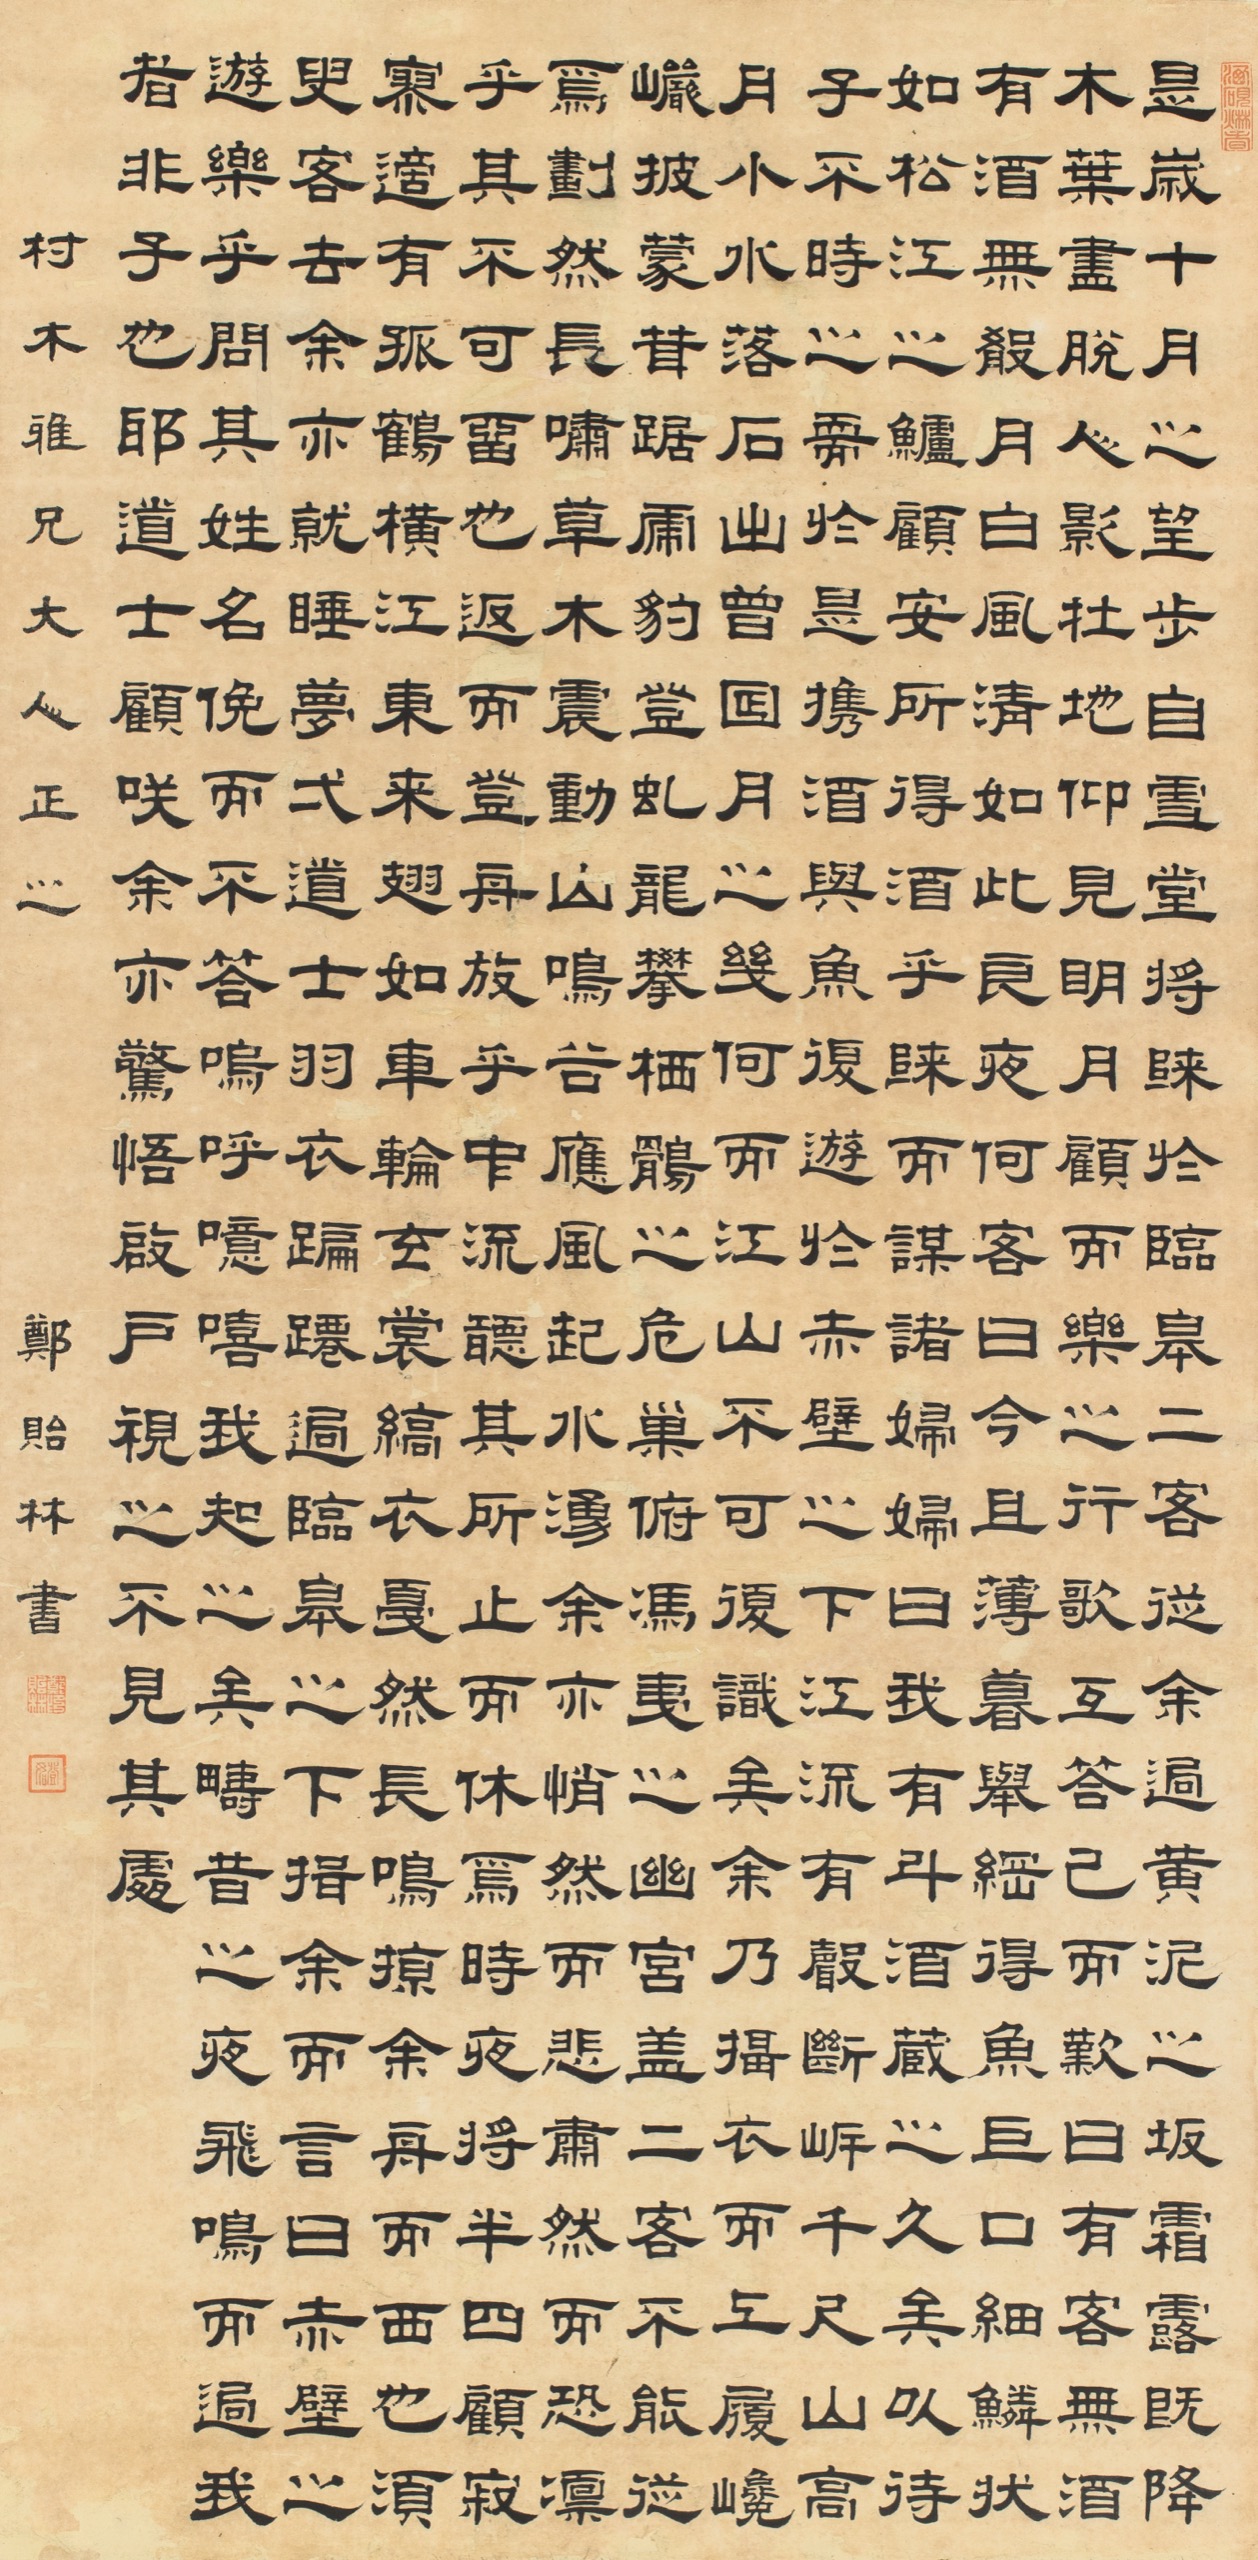 是歲十月之望步自雪堂將歸於臨皋二客從余過黃泥之坂霜露既降
木葉盡脫人影在地仰見明月顧而樂之行歌互答已而歎曰有客無酒
有酒無殽月白風清如此良夜何客曰今且薄暮舉網得魚巨口細鱗狀
如松江之鱸顧安所得酒乎歸而謀諸婦婦曰我有斗酒藏之久矣以待
子不時之需於是攜酒與魚復遊於赤壁之下江流有聲斷岸千尺山高
月小水落石出曾日月之幾何而江山不可復識矣余乃攝衣而上履巉
巖披蒙茸踞虎豹登虬龍攀栖鶻之危巢俯馮夷之幽宮蓋二客不能從
焉劃然長嘯草木震動山鳴谷應風起水湧余亦悄然而悲肅然而恐凜
乎其不可留也返而登舟放乎中流聽其所止而休焉時夜將半四顧寂
寥適有孤鶴橫江東来翅如車輪玄裳縞衣戛然長鳴掠余舟而西也須
臾客去余亦就睡夢弍道士羽衣蹁躚過臨皋之下揖余而言曰赤壁之
遊樂乎問其姓名俛而不答嗚呼噫嘻我知之矣疇昔之夜飛鳴而過我
者非子也耶道士顧咲余亦驚悟啟戶視之不見其處
村木雅兄大人正之 鄭貽林書